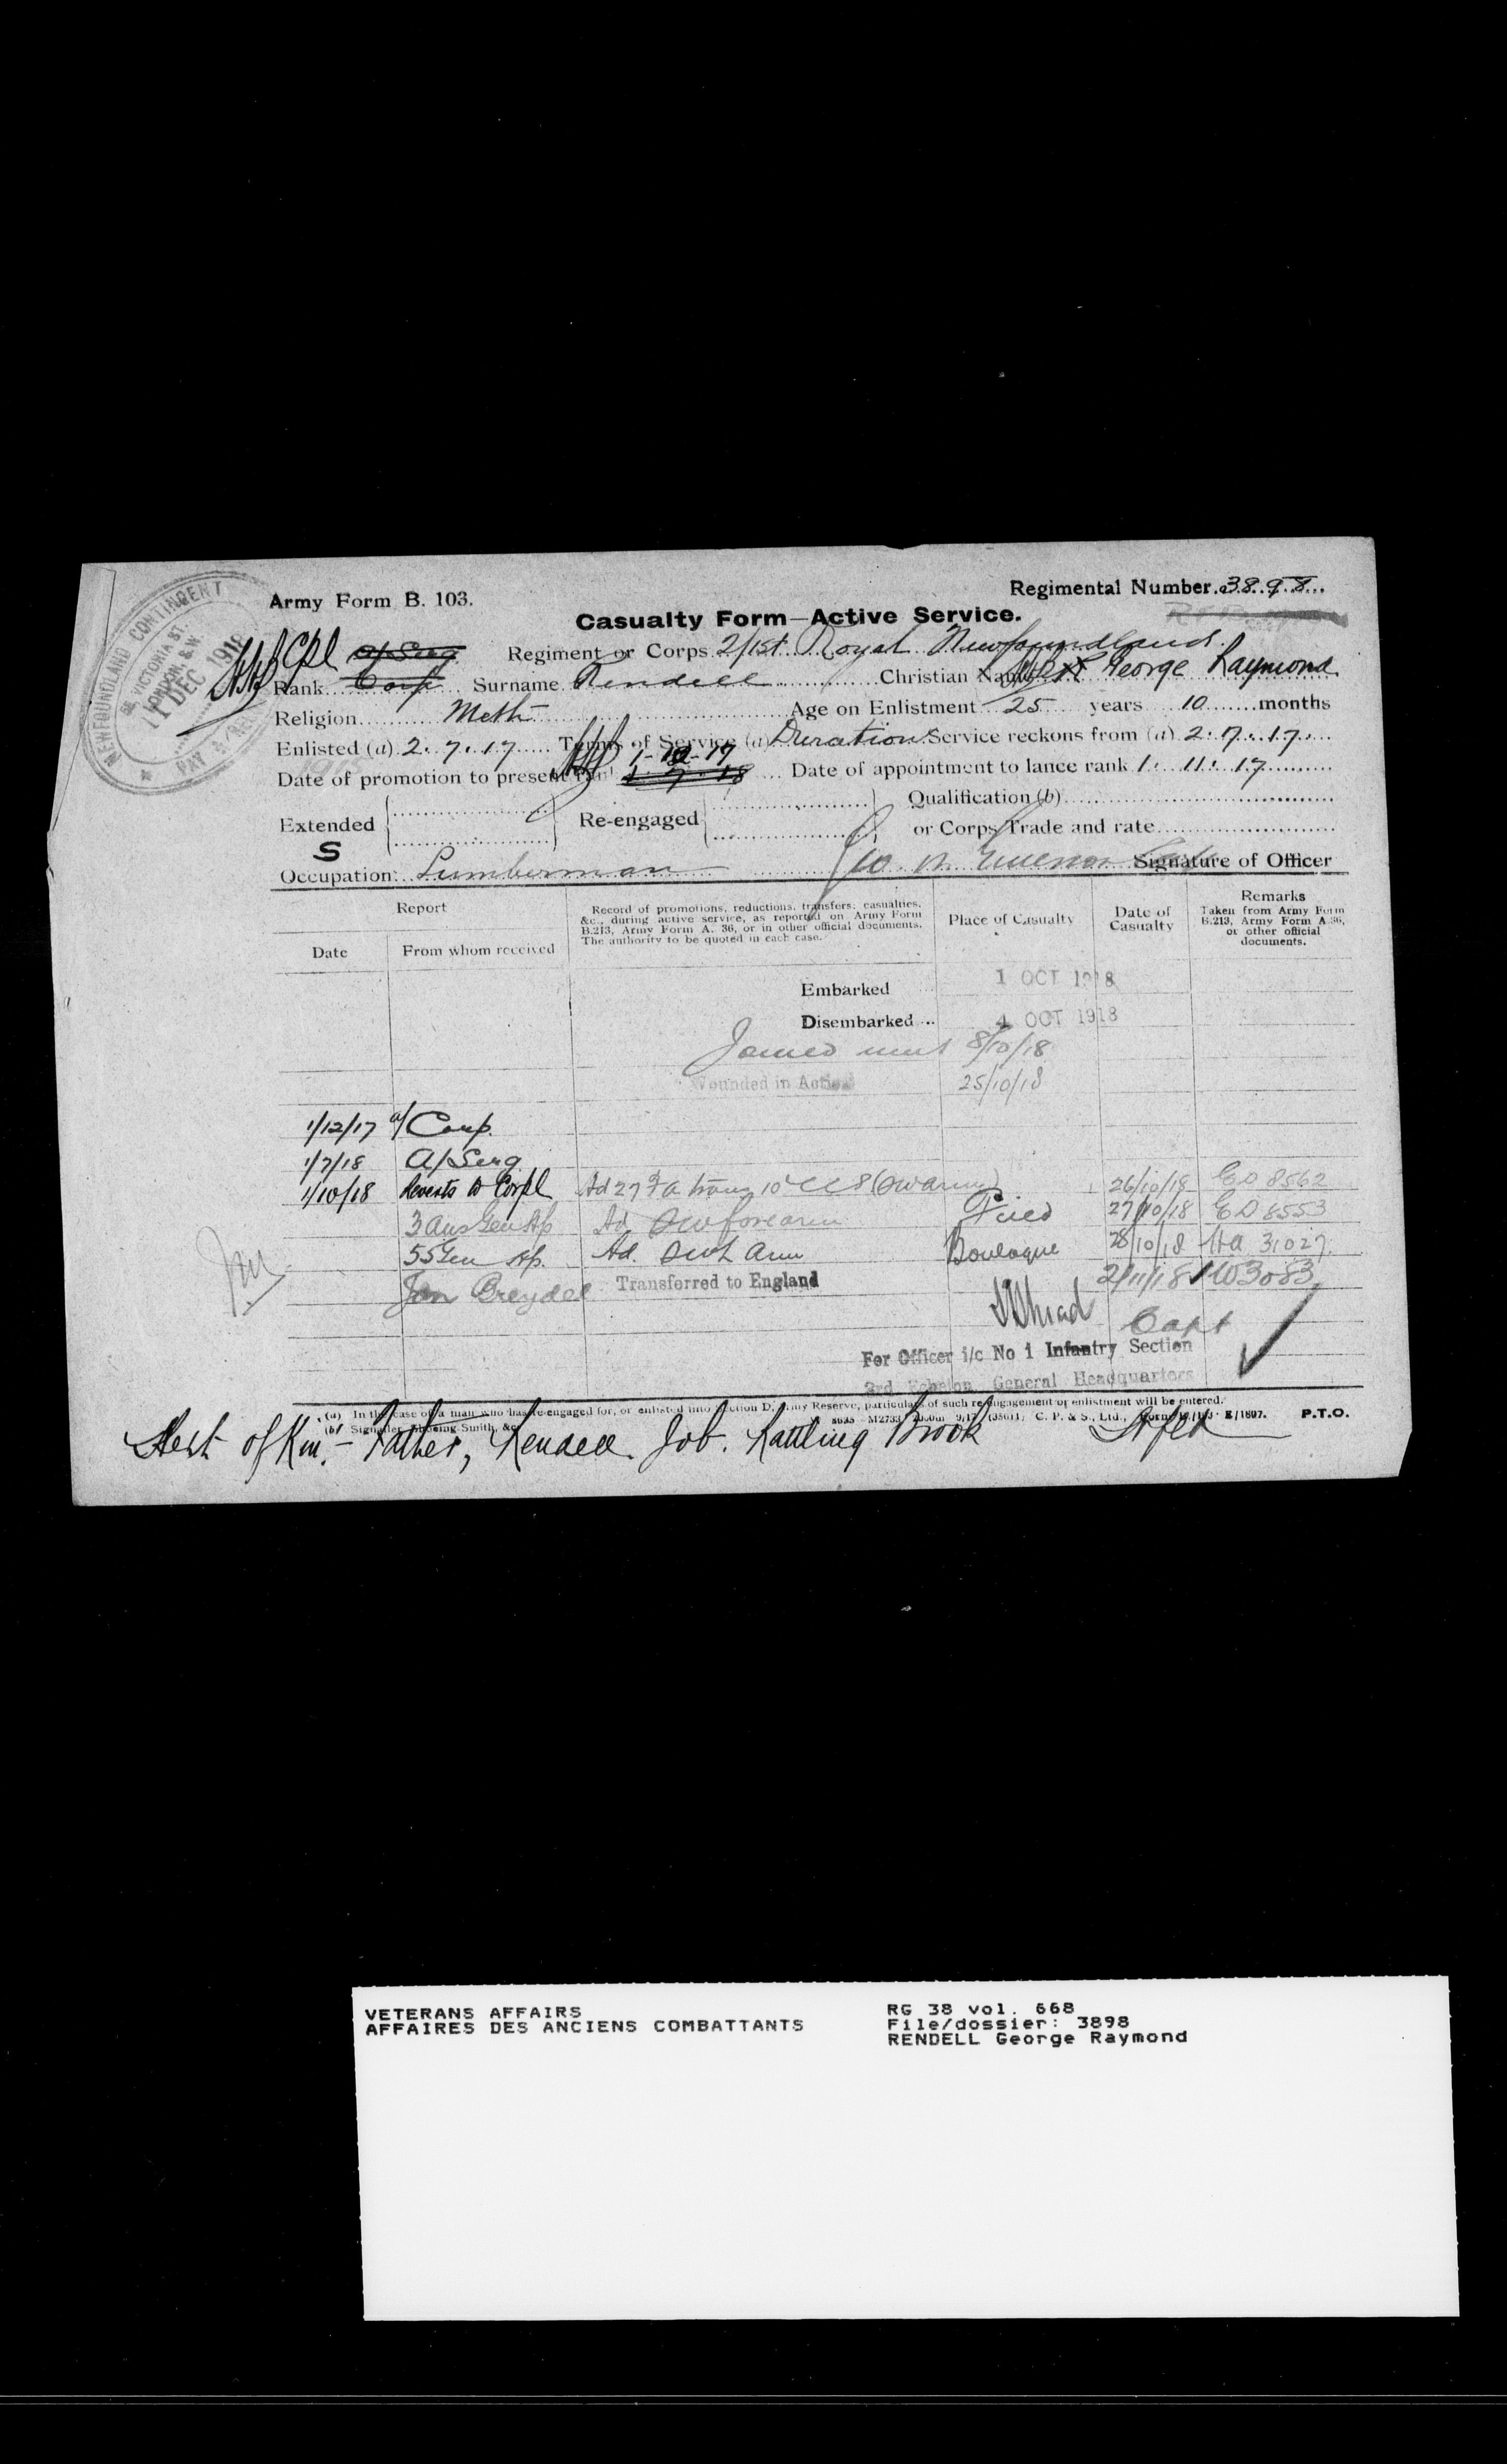 NEWFOUNDLAND CONTINGENT
58, VICTORIA ST.
LONDON, S.W.
11 DEC 1918
PAY &
Army Form B. 103.
Regimental Number 3898
Casualty Form—Active Service.
Cpl A/Serg Regiment or Corps 2/1st Royal Newfoundland
Rank Corp Surname Rendell Christian Name George Raymond
Religion Meth Age on Enlistment 25 years 10 months
Enlisted (a) 2.7.17 Terms of Service (a) Duration Service reckons from (a) 2.7.17
1-12-17
Date of promotion to present rank 1.7.18 Date of appointment to lance rank 1.11.17
Extended Re-engaged Qualification (b)
or Corps Trade and rate
S
Occupation Lumberman Signature of Officer
Report
Date From whom received
Record of promotions, reductions, transfers, casualties, &c., during active service, as reported on Army Form B.213, Army Form A. 36, or in other official documents. The authority to be quoted in each case.
Place of Casualty
Date of Casualty
Remarks Taken from Army Form B.213, Army Form A.36, or other official documents.
Embarked 1 OCT 1918
Disembarked ... 4 OCT 1918
Joined unit 8/10/18
Wounded in Action 25/10/18
1/12/17 a/Corp.
1/7/18 A/Serg
1/10/18 Reverts to Corpl Ad 27 F a trans 10 CCS (GW arm) 26/10/18 ED 8562
3 Aus Gen Hp Ad GW forearm Field 27/10/18 ED 8553
55 Gen Hp. Ad. GW L Arm Boulogne 28/10/18 HA 31027
Jan Breydel Transferred to England 2/11/18 W3083
Capt
For Officer i/c No 1 Infantry Section
3rd Echelon General Headquarters
(a) In the case of a man who has re-engaged for, or enlisted into Section D, Army Reserve, particulars of such re-engagement or enlistment will be entered.
(b) Signaller, Shoeing Smith, &c. C. P. & S., Ltd., E/1807. P.T.O.
Next of Kin:- Father, Rendell Job. Rattling Brook
VETERANS AFFAIRS
AFFAIRES DES ANCIENS COMBATTANTS
RG 38 vol. 668
File/dossier: 3898
RENDELL George Raymond